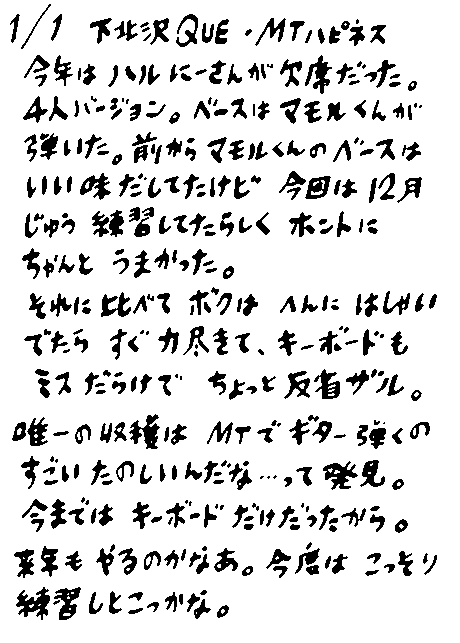 1/1 下北沢QUE・MTハピネス
今年は ハルにーさんが欠席だった。
4人バージョン。ベースは マモルくんが
弾いた。前から マモルくんの ベースは
いい味だしてたけど 今回は 12月
じゅう 練習してたらしく ホントに
ちゃんと うまかった。
それに比べて ボクは へんに はしゃい
でたら すぐ 力尽きて、キーボードも
ミスだらけで ちょっと 反省ザル。
唯一の収穫は MTで ギター弾くの
すごい たのしいんだな…って 発見。
今までは キーボード だけだったから。
来年も やるのかなあ。今度は こっそり
練習しとこっかな。